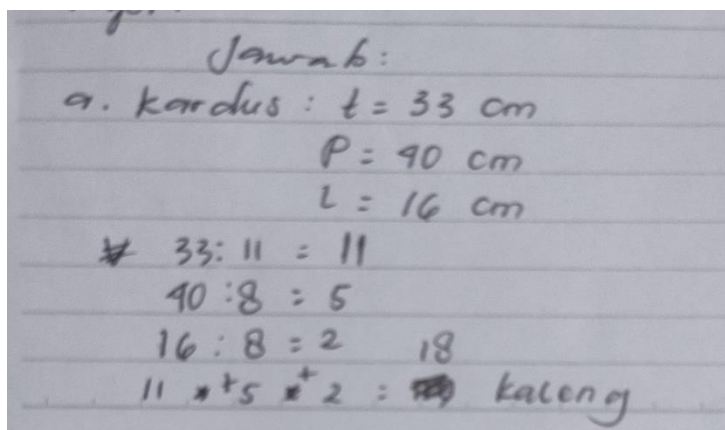 Jawab:
a. Kardus : t = 33 cm
P = 40 cm
l = 16 cm
33 : 11 = 11
40 : 8 = 5
16 : 8 = 2
11 + 5 + 2 = 18 kaleng